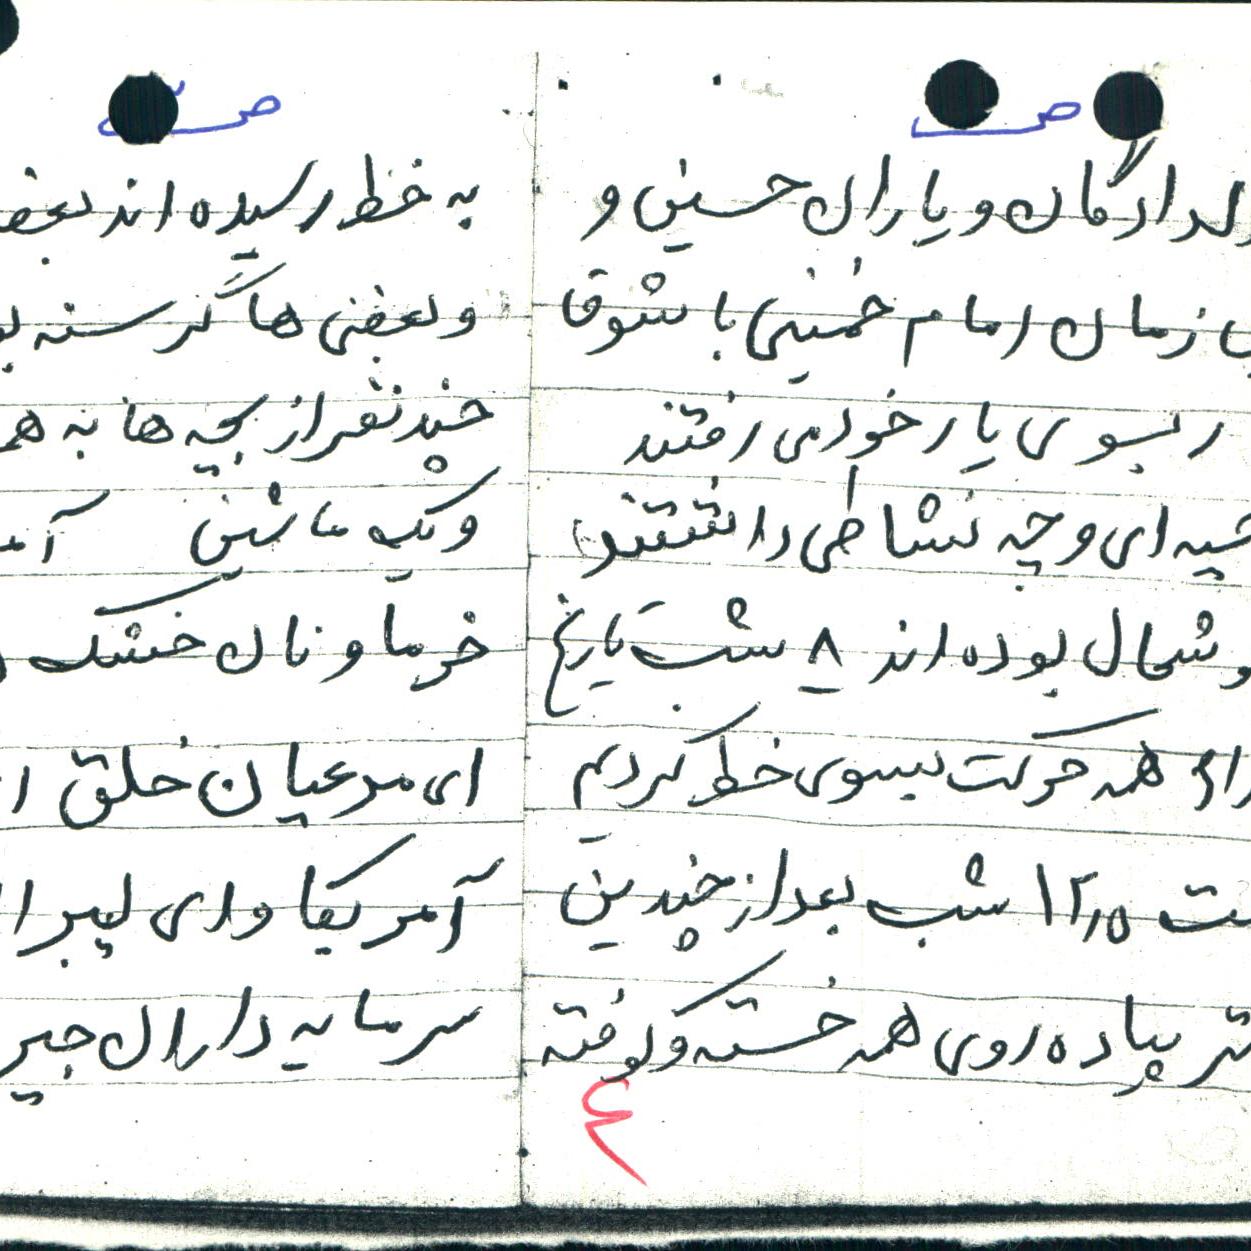 ص
دلدادگان و یاران حسینی و
زمان امام خمینی با شوق
بسوی یار خود می رفتند
ای و چه نشاطی داشتند
شحال بوده اند ۸ شب تاریخ
همه حرکت بسوی خط کردیم
۱۲/۵ شب بعد از چندین
پیاده روی همه خسته و کوفته
۴
ص
به خط رسیده اند بعضی
و بعضی ها گرسنه
چند نفر از بچه ها به
و یک ماشین
خرما و نان خشک
ای مدعیان خلق
آمریکا و ای لیبرا
سرمایه داران